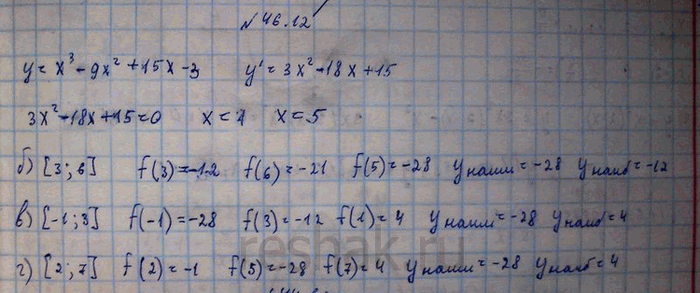 № 46.12
y = x³ - 9x² + 15x - 3 y' = 3x² - 18x + 15
3x² - 18x + 15 = 0 x = 1 x = 5
б) [3; 6] f(3) = -12 f(6) = -21 f(5) = -28 yнаим = -28 yнаиб = -12
в) [-1; 3] f(-1) = -28 f(3) = -12 f(1) = 4 yнаим = -28 yнаиб = 4
г) [2; 7] f(2) = -1 f(5) = -28 f(7) = 4 yнаим = -28 yнаиб = 4
reshak.ru